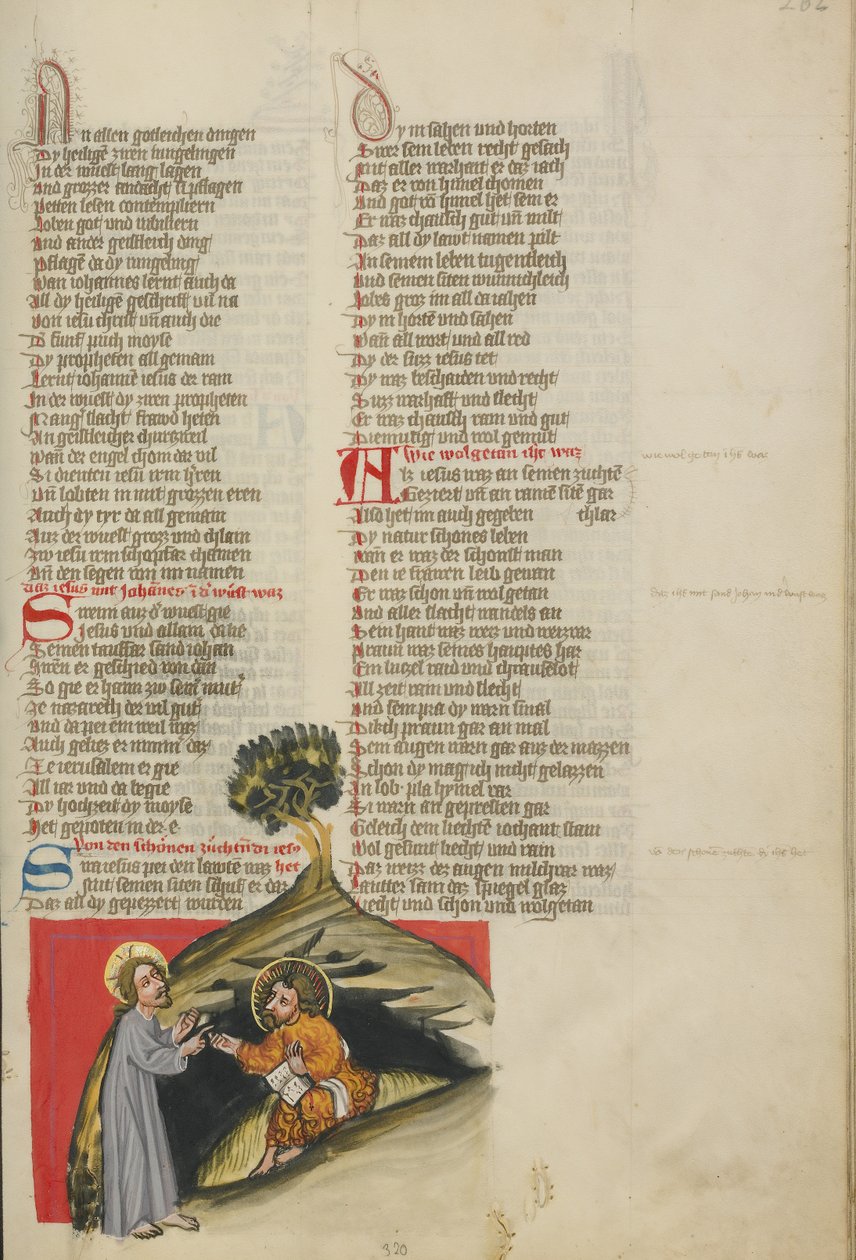 In allen gotleichen dingen
Dy heiligē zwen iungelingen
In der wuest lang lagen
Vnd grozzer andacht si pflagen
Petten lesen contempliern
Loben got und iubiliern
Vnd ander geistleich ding
Pflagē da dy iungeling
Wan iohannes lernt auch da
All dy heiligē geschrift vil na
Von iesu christ un̄ auch die
Dͤ funf puch moyse
Dy propheten all gemain
Lernt iohannē iesus der rain
In der wuest dy zwen propheten
Mang slacht frawd heten
An geistleicher churczweil
Wan̄ der engel chom dar vil
Si dienten iesu irm h̄ren
Vn̄ lobten in mit grozzen eren
Auch dy tyr da all gemain
Auz der wuest groz und chlain
Zw iesu irm schophar chamen
Vn̄ den segen von im namen
daz iesus mit Johānes ī dͤ wūst waz
Sweim auz dͤ wuest gie
Jesus und allain da lie
Seinen tauffar sand iohan
Swen er geschied von dan
So gie er haim zw seinͤ mutͤ
Ze nazareth der vil gut
Vnd da pei ein weil waz
Auch geliez er nimm̄ daz
Ze ierusalem er gie
All iar und da begie
Dy hochzeit dy moyse
Het gepoten in der e
Von den schönen zūchtn̄ di iesu
het
Swa iesus pei den lawtē waz
Mit seinen siten schuf er daz
Daz all dy gepezzert wurden
Dy in sahen und horten
Swer sein leben recht gesach
Mit aller warhait er daz iach
Daz er von himel chomen
Vnd got vō himel het sein er
Er waz chausch gut un̄ milt
Daz all dy lawt namen pilt
An seinem leben tugentleich
Vnd seinen siten wunnichleich
Lobes groz im all da iahen
Dy in hortē und sahen
Wan̄ all wort und all red
Dy der suzz iesus tet
Dy waz beschaiden und recht
Suzz warhaft und slecht
Er waz chausch rain und gut
Diemutig und wol gemut
Wie wolgetan iħs waz
Alz iesus waz an seinen zuchtē
Geziert un̄ an rainē sitē gar
Also het im auch gegeben
chlar
Dy natur schones leben
Wan̄ er waz der schonst man
Den ie frawen leib gewan
Er waz schon un̄ wol getan
Vnd aller slacht wandels an
Sein haut waz weiz und weizvar
Praun waz seines hauptes har
Ein luczel raid und chrauselot
All zeit rain und slecht
Vnd sein pra dy warn smal
Dikch praun gar an mal
Sein augen warn gar auz der mazzen
Schon dy mag ich nicht gelazzen
In lob pla hymel var
Si warn an gepresten gar
Geleich dem liechtē iochant stain
Wol gesunt liecht und rain
Daz weizz der augen milchvar waz
Lautter sam daz spiegel glaz
Liecht und schon und wolgetan
wie wol getan iħs waz
daz iħs mit sand Johan in dͤ wust waz
320